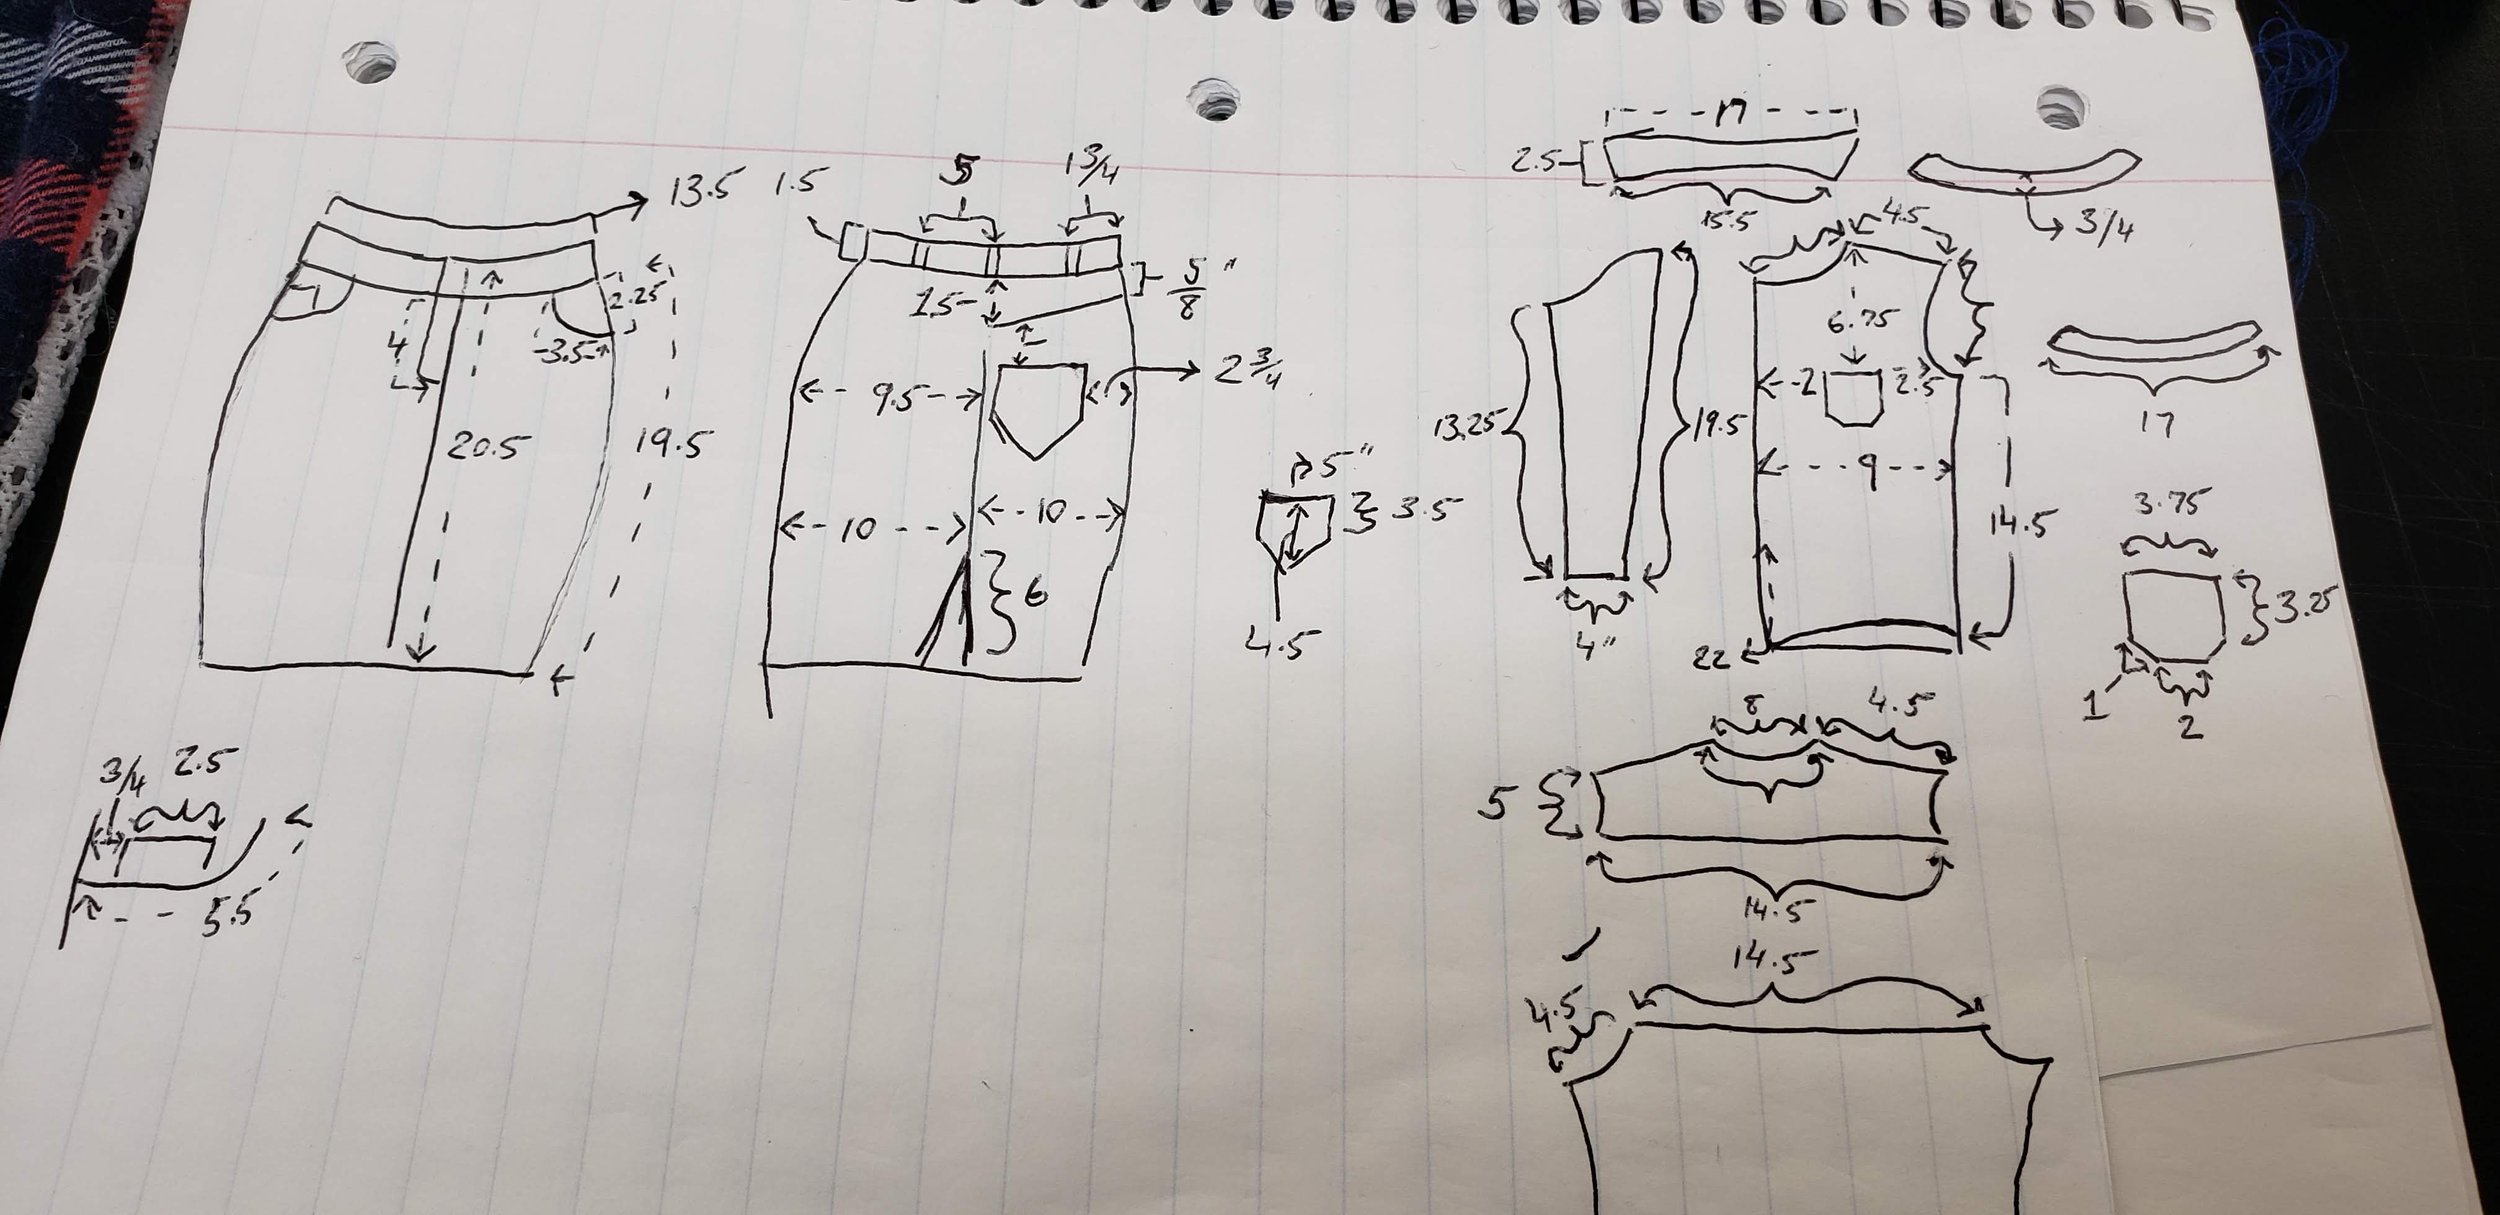 13.5
4
2.25
3.5
20.5
19.5
3/4
2.5
5.5
1.5
5
1 3/4
5/8"
9.5
2 3/4
10
10
6
5"
3.5
4.5
17
2.5
15.5
3/4
4.5
13.25
19.5
4"
6.75
2
2.5
9
14.5
22
17
3.75
3.25
1
2
8
4.5
5
14.5
14.5
4.5